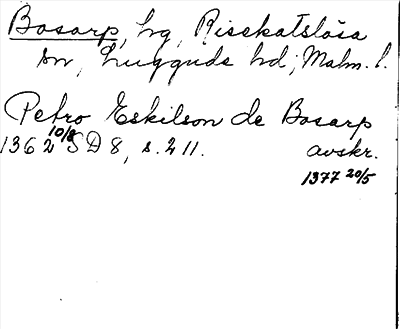 Bosarp, hg, Risekatslösa
sn, Luggude hd; Malm. l.
Petro Eskilson de Bosarp
1362 10/8 SD 8, s. 211. avskr.
1377 20/5